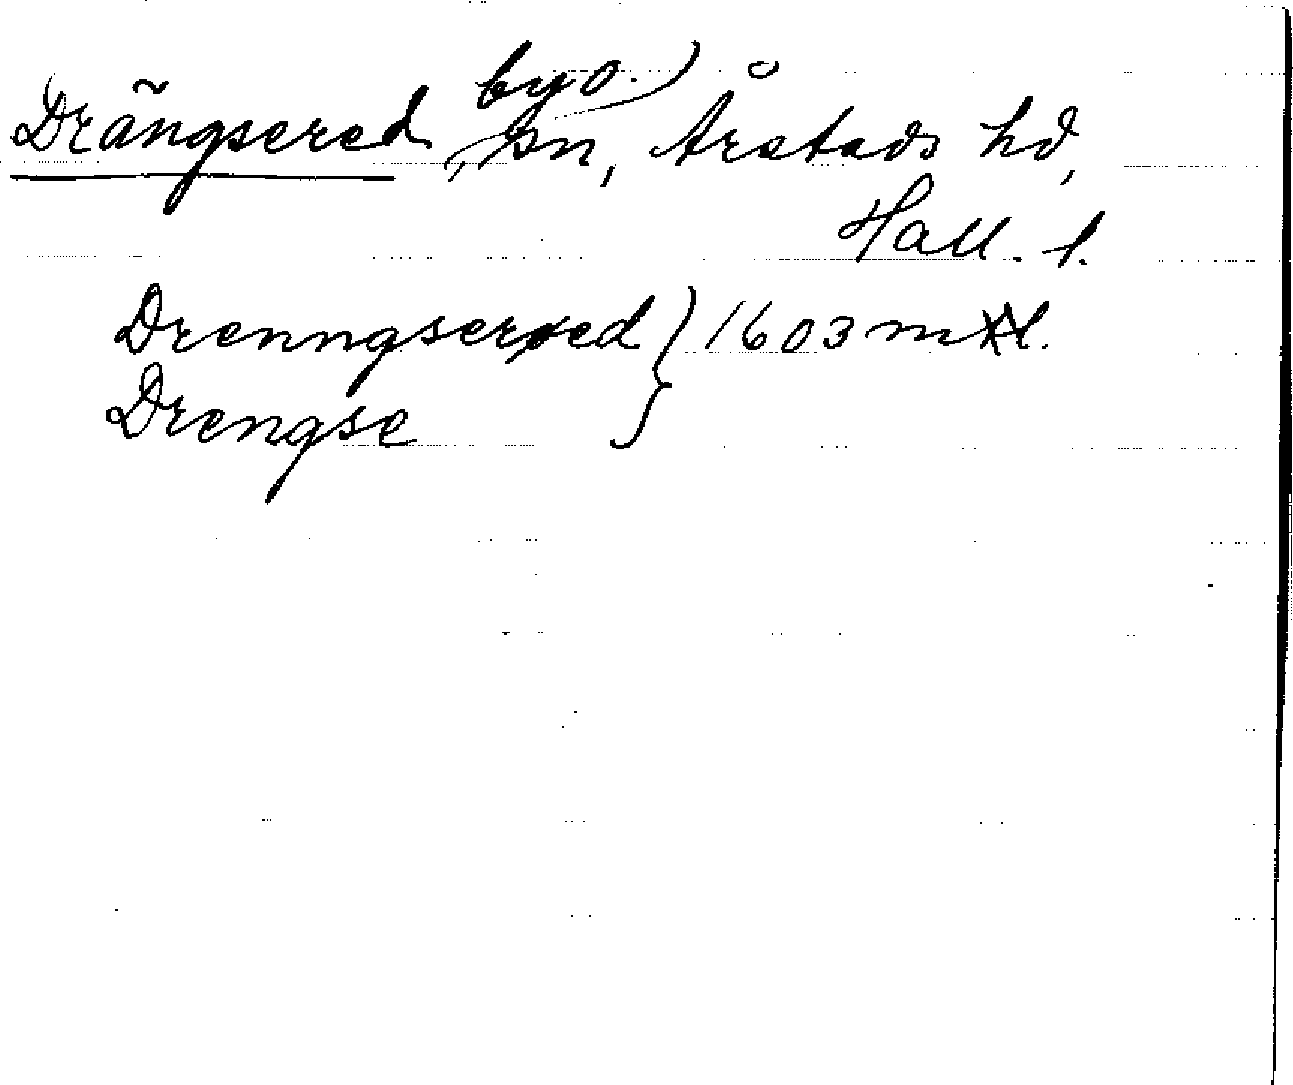 Drängsered, by o. sn, Årstads hd,
Hall. l.
Drenngsered } 1603 mtl.
Drengse